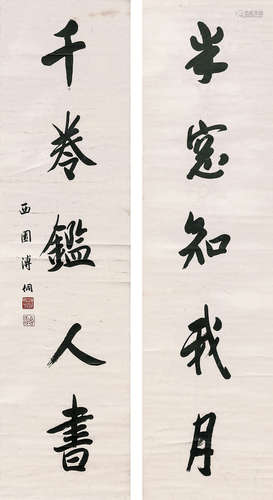 半窓知我月
千卷鑑人書
西園溥侗